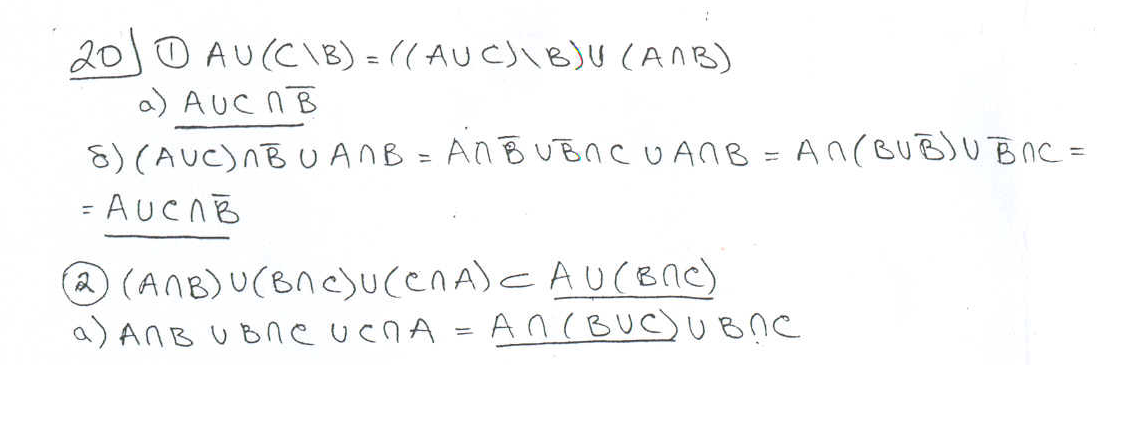 20) ① A∪(C\B) = ((A∪C)\B)∪(A∩B)
а) A∪C∩B̅
б) (A∪C)∩B̅ ∪ A∩B = A∩B̅ ∪ B̅∩C ∪ A∩B = A∩(B∪B̅)∪ B̅∩C =
= A∪C∩B̅
② (A∩B)∪(B∩C)∪(C∩A) ⊂ A∪(B∩C)
а) A∩B ∪ B∩C ∪ C∩A = A∩(B∪C)∪B∩C